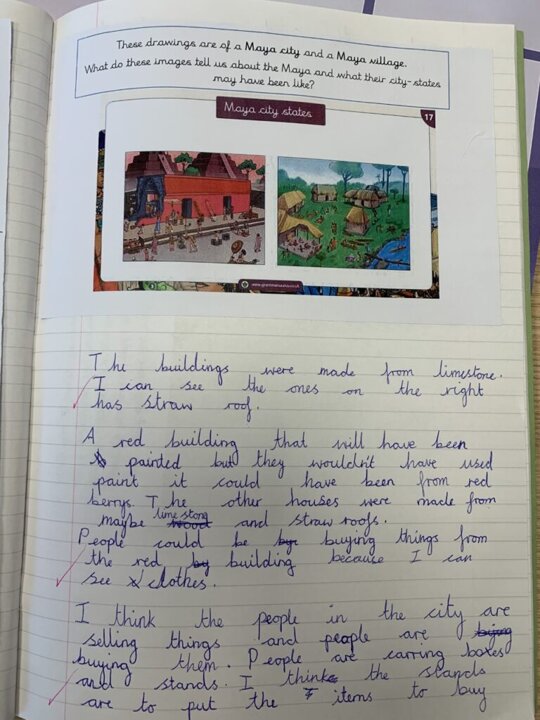 These drawings are of a Maya city and a Maya village.
What do these images tell us about the Maya and what their city-states
may have been like?
Maya city states
17
The buildings were made from limestone.
I can see the ones on the right
has straw roof.
A red building that will have been
painted but they wouldn't have used
paint it could have been from red
berrys. The other houses were made from
lime stong
maybe wood and straw roofs.
People could be buying things from
the red by building because I can
see clothes.
I think the people in the city are
selling things and people are bijing
buying them. People are carring boxes
and stands. I think the stands
are to put the items to buy